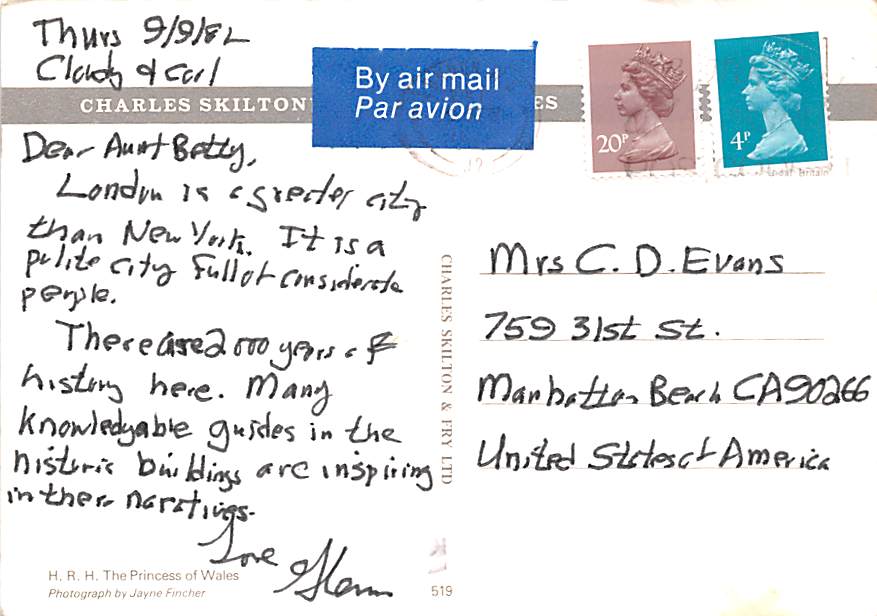 Thurs 9/9/82
Cloudy & Cool
CHARLES SKILTON
ES
By air mail
Par avion
20P
4P
Dear Aunt Betty,
London is a greater city
than New York. It is a
polite city full of considerate
people.
There are 2000 years of
history here. Many
knowledgable guides in the
historic buildings are inspiring
in their naratives.
Love
Glenn
Mrs C. D. Evans
759 31st St.
Manhattan Beach CA 90266
United States of America
CHARLES SKILTON & FRY LTD
H. R. H. The Princess of Wales
Photograph by Jayne Fincher
519